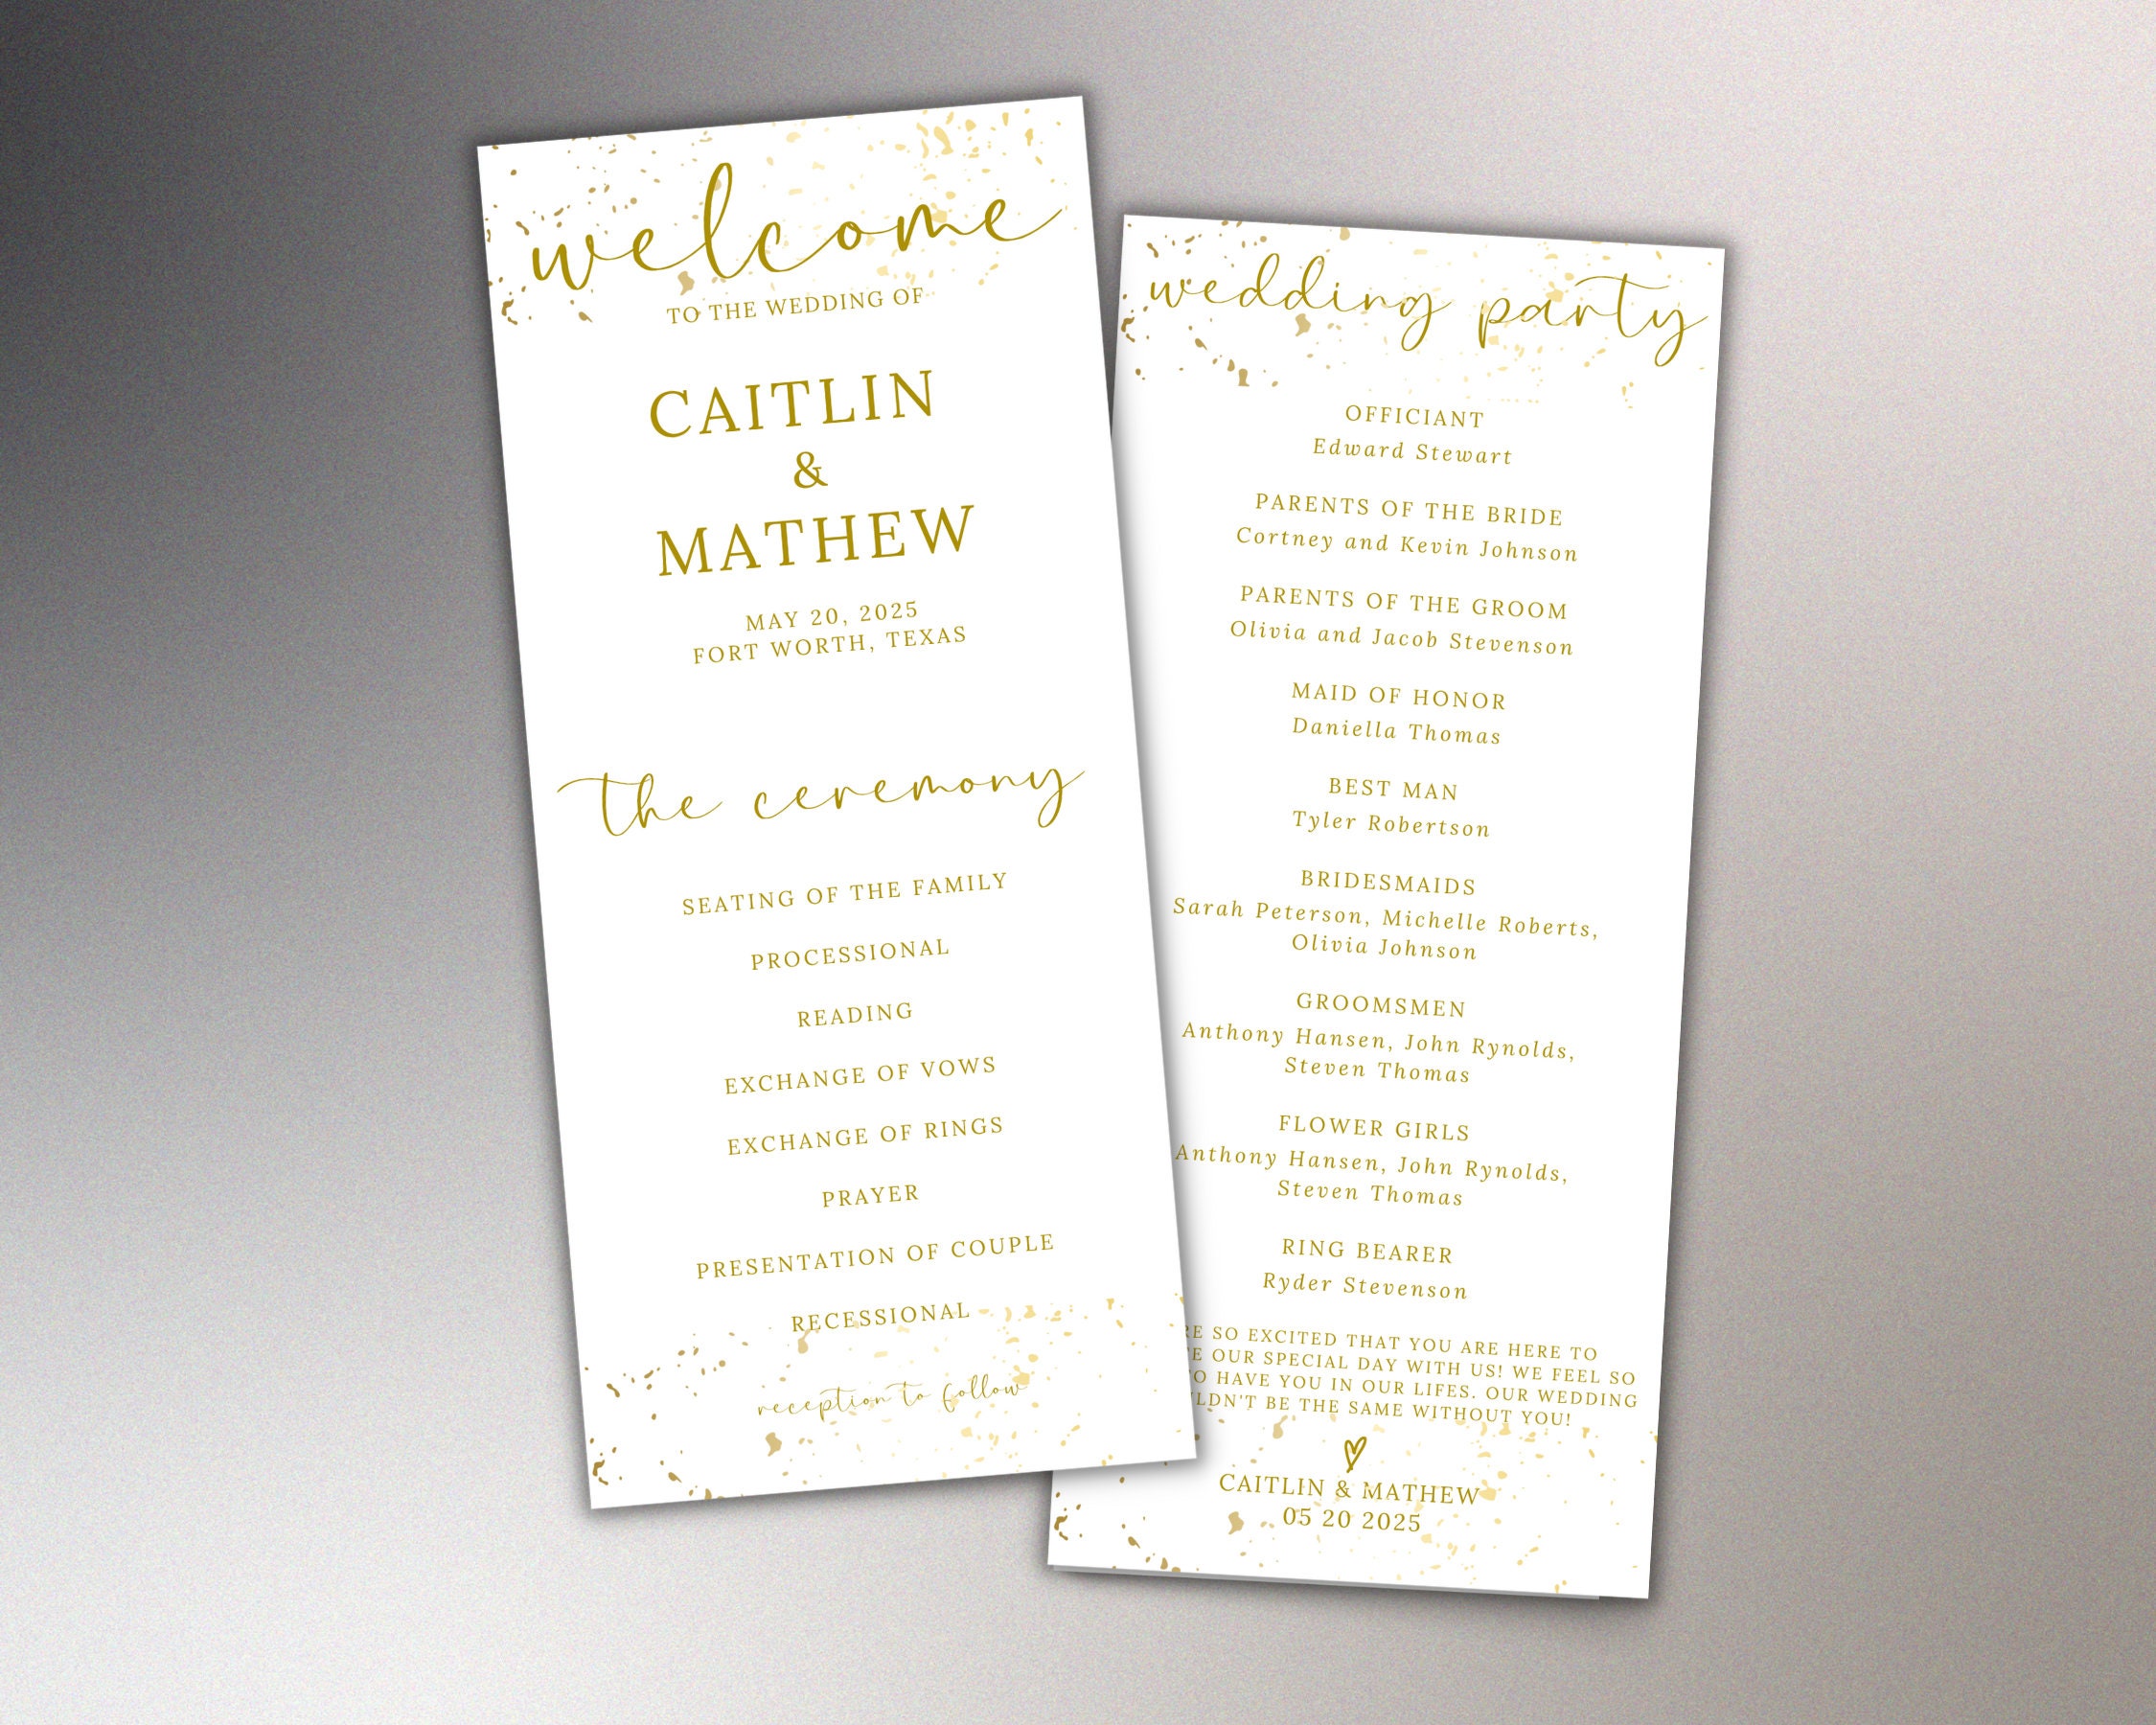 welcome
TO THE WEDDING OF
CAITLIN
&
MATHEW
MAY 20, 2025
FORT WORTH, TEXAS
the ceremony
SEATING OF THE FAMILY
PROCESSIONAL
READING
EXCHANGE OF VOWS
EXCHANGE OF RINGS
PRAYER
PRESENTATION OF COUPLE
RECESSIONAL
reception to follow
wedding party
OFFICIANT
Edward Stewart
PARENTS OF THE BRIDE
Cortney and Kevin Johnson
PARENTS OF THE GROOM
Olivia and Jacob Stevenson
MAID OF HONOR
Daniella Thomas
BEST MAN
Tyler Robertson
BRIDESMAIDS
Sarah Peterson, Michelle Roberts,
Olivia Johnson
GROOMSMEN
Anthony Hansen, John Rynolds,
Steven Thomas
FLOWER GIRLS
Anthony Hansen, John Rynolds,
Steven Thomas
RING BEARER
Ryder Stevenson
SO EXCITED THAT YOU ARE HERE TO
OUR SPECIAL DAY WITH US! WE FEEL SO
HAVE YOU IN OUR LIFES. OUR WEDDING
BE THE SAME WITHOUT YOU!
CAITLIN & MATHEW
05 20 2025